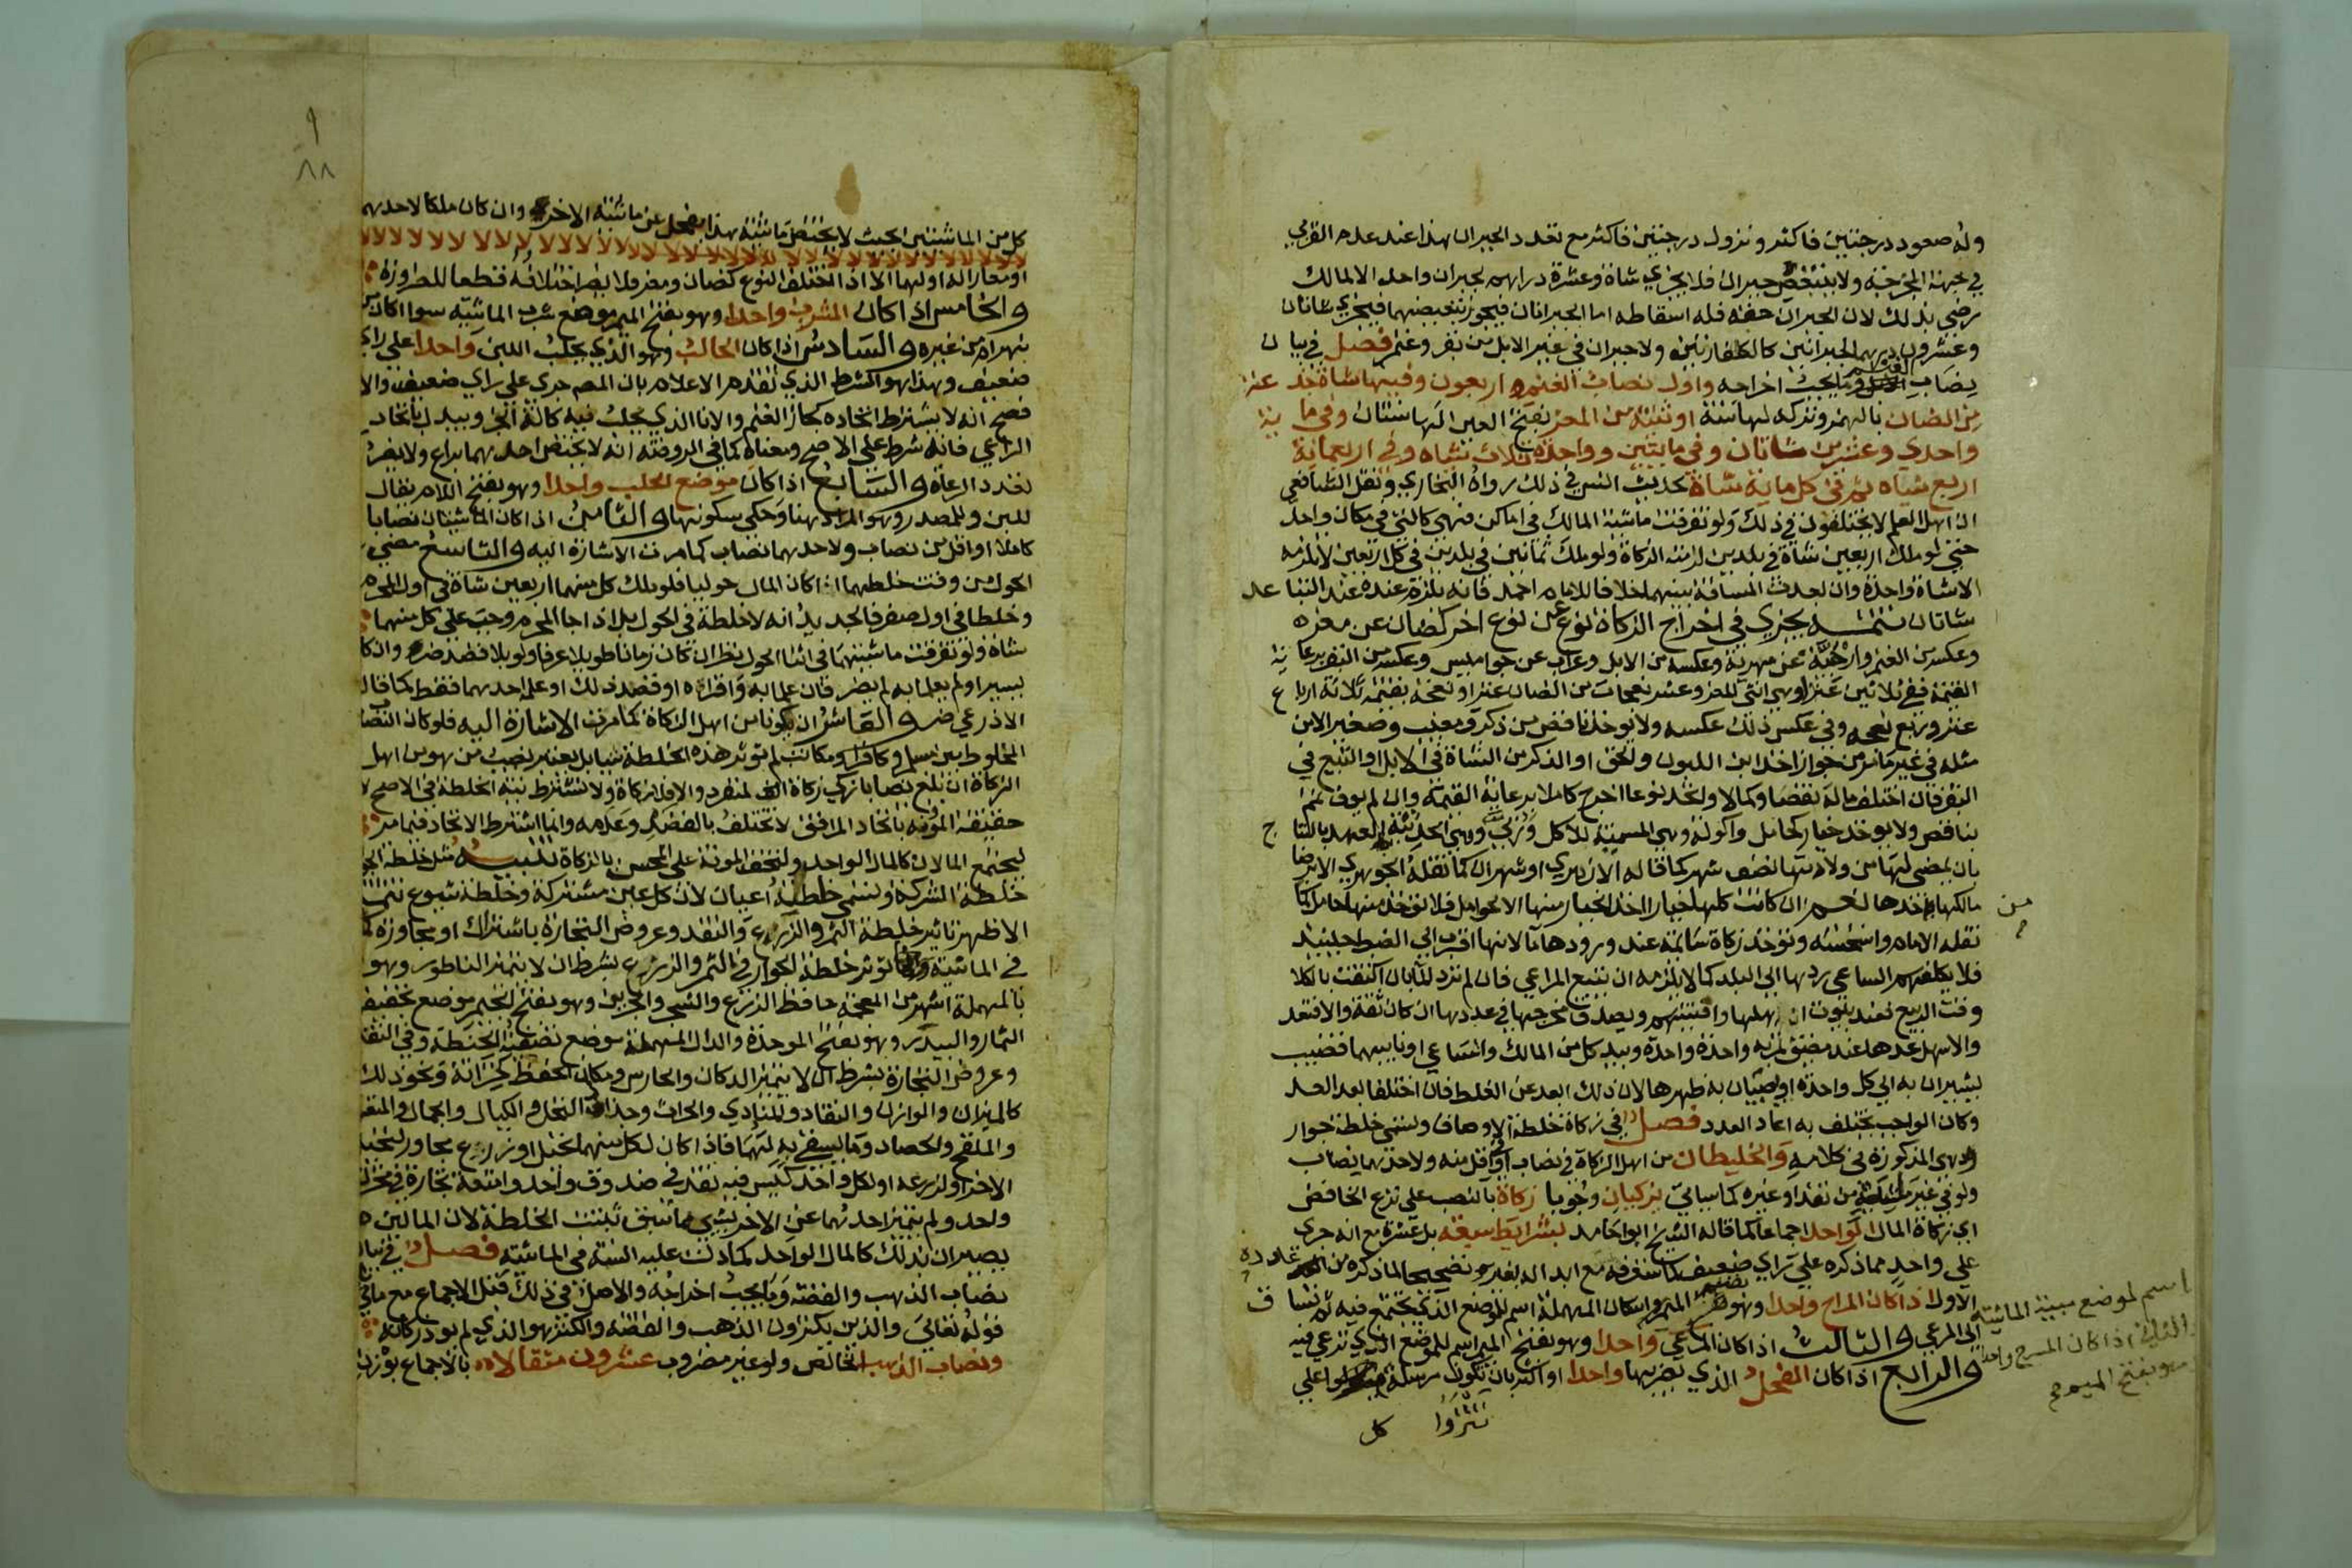 وله صعود درجتين فاكثر ونزول درجتين فاكثر مع تعدد الجبران هذا عند عدم القربي
في جهة المخرجة ولا يتبعض جبران فلا يجزي شاة وعشرة دراهم لجبران واحد الا لمالك
رضي بذلك لان الجبران حقه فله اسقاطه اما الجبرانان فيجوز تبعيضهما فيجزي شاتان
وعشرون درهما لجبرانين كالكفارتين ولا جبران في غير الابل من بقر وغنم فصل في بيان
نصاب الغنم وما يجب اخراجه واول نصاب الغنم اربعون وفيها شاة جذعة
من الضان بالهمز وتركه لها سنة او ثنية من المعز بفتح العين لها سنتان وفي مايه
واحدي وعشرين شاتان وفي مايتين وواحدة ثلاث شياه وفي اربعماية
اربع شياه ثم في كل ماية شاة لحديث انس في ذلك رواه البخاري ونقل الشافعي
ان اهل العلم لا يختلفون في ذلك ولو تفرقت ماشية المالك في اماكن فهي كالتي في مكان واحد
حتي لو ملك اربعين شاة في بلدين لزمته الزكاة ولو ملك ثمانين في بلدين في كل اربعين لا يلزمه
الا شاة واحدة وان بعدت المسافة بينهما خلافا للامام احمد فانه يلزمه عنده عند التباعد
شاتان تتمــه يجزي في اخراج الزكاة نوع عن نوع اخر كضان عن معز
وعكسه من الغنم وارحبية عن مهرية وعكسه من الابل وعراب عن جواميس وعكسه من البقر برعاية
القيمة ففي ثلاثين عنزا وهي انثي المعز وعشر نعجات من الضان عنز او نعجة بقيمة ثلاثة ارباع
عنز وربع نعجه وفي عكس ذلك عكسه ولا يوخذ ناقص من ذكر ومعيب وصغير الا من
مثله في غير ما مر من جواز اخذ ابن اللبون والحق او الذكر من الشاة في الابل او التبيع في
البقر فان اختلف ماله نقصا وكمالا واتحد نوعا اخرج كاملا برعاية القيمة وان لم يوف تمم
بناقص ولا يوخذ خيار كحامل واكولة وهي المسمنة للاكل وربي وهي الحديثة العهد بالنتاج
بان يمضي لها من ولادتها نصف شهر كما قاله الازهري او شهران كما نقله الجوهري الا برضا
مالكها باخذها نعــم ان كانت كلها خيارا اخذ الخيار منها الا الحوامل فلا توخذ منها حامل كما
نقله الامام واستحسنه وتوخذ زكاة سائمة عند ورودها ماء لانها اقرب الي الضبط حينيذ
فلا يكلفهم الساعي ردها الي البلد كما لا يلزمه ان يتتبع المراعي فان لم ترد الماء بان اكتفت بالكلا
وقت الربيع فعند بيوت اهلها وافنيتهم ويصدق مخرجها في عددها ان كان ثقة والا فتعد
والاسهل عدها عند مضيق تمر به واحدة واحدة وبيد كل من المالك والساعي او نايبهما قضيب
يشيران به الي كل واحدة او يصيبان به ظهرها لان ذلك ابعد عن الغلط فان اختلفا بعد العد
وكان الواجب يختلف به اعاد العدد فصل في زكاة خلطة الاوصاف وتسمي خلطة جوار
وهي المذكورة في كلامه والخليطان من اهل الزكاة في نصاب او اقل منه ولاحدهما نصاب
ولو في غير ماشية من نقد او غيره كما سياتي يزكيان وجوبا زكاة بالنصب علي نزع الخافض
اي زكاة المال الواحد اجماعا كما قاله الشيخ ابو حامد بشرايط سبعه بل عشرة مع انه جري
علي واحد مما ذكره علي راي ضعيف كما ستعرفه مع ابداله بغيره تصحيحا لما ذكره من عدده
الاول اذا كان المراح واحدا وهو بضم الميم واسكان المهملة اسم للموضع الذي تجتمع فيه ثم تساق
الي المرعي والثالث اذا كان المرعي واحدا وهو بفتح الميم اسم للموضع الذي ترعي فيه
والرابع اذا كان الفحل الذي يضربها واحدا او اكثر بان تكون مرسلة علي
اسم لموضع مبيت الماشية
والثاني اذا كان المسرح واحدا
وهو بفتح الميم
كل
٨٨
كل من الماشيتين بحيث لا تختص ماشية هذا بفحل عن ماشية الاخر وان كان ملكا لاحدهما
او معارا له او لهما الا اذا اختلف النوع كضان ومعز فلا يضر اختلافه قطعا للضرورة
والخامس اذا كان المشرب واحدا وهو بفتح الميم موضع شرب الماشيه سوا اكان من
نهر ام من غيره والسادس اذا كان الحالب وهو الذي يحلب اللبن واحدا علي راي
ضعيف وهذا هو الشرط الذي تقدم الاعلام بان المصم جري علي راي ضعيف والا
فصح انه لا يشترط اتحاده كجاز الغنم والانا الذي يحلب فيه كالة الجز ويبدل باتحاد
الراعي فانه شرط علي الاصح ومعناه كما في الروضة انه لا يختص احدهما براع ولا يضر
تعدد الرعاة والسابع اذا كان موضع الحلب واحدا وهو بفتح اللام يقال
للبن وللمصدر وهو المراد هنا وحكي سكونها والثامن اذا كان الماشيتان نصابا
كاملا او اقل من نصاب ولاحدهما نصاب كما مرت الاشارة اليه والتاسع مضي
الحول من وقت خلطهما اذا كان المال حوليا فلو ملك كل منهما اربعين شاة في اول المحرم
وخلطا في اول صفر فالجديد انه لا خلطة في الحول بل اذا جا المحرم وجب علي كل منهما
شاة ولو تفرقت ماشيتهما في اثنا الحول نظر ان كان زمانا طويلا عرفا ولو بلا قصد ضر وان كان
يسيرا ولم يعلما به لم يضر فان علما به واقراه او قصد ذلك او علمه احدهما فقط كما قال
الاذرعي ضر والعاشر ان يكونا من اهل الزكاة كما مرت الاشارة اليه فلو كان النصاب
المخلوط بين مسلم وكافر او مكاتب لم توثر هذه الخلطة شيا بل يعتبر نصيب من هو من اهل
الزكاة ان بلغ نصابا زكي زكاة المنفرد والا فلا زكاة ولا تشترط نية الخلطة في الاصح لان
خفيفة المونه باتحاد المرافق لا تختلف بالقصد وعدمه وانما اشترط الاتحاد فيما مر
ليجتمع المالان كالمال الواحد ولتخف المونة علي المحسن بالزكاة تنبيه مثل خلطة الجوار
خلطة الشركة وتسمي خلطة اعيان لان كل عين مشتركة وخلطة شيوع تتمة
الاظهر تاثير خلطة الثمر والزرع والنقد وعروض التجارة باشتراك او مجاورة كما
في الماشية وانما توثر خلطة الجوار في الثمر والزرع بشرط ان لا يتميز الناطور وهو
بالمهملة اشهر من المعجمة حافظ الزرع والشجر والجرين وهو بفتح الجيم موضع تجفيف
الثمار والبيدر وهو بفتح الموحدة والدال المهملة موضع تصفية الحنطة وفي النقد
وعروض التجارة بشرط ان لا يتميز الدكان والحارس ومكان الحفظ كخزانة ونحو ذلك
كالميزان والوازن والنقاد والمنادي والحراث وجذاذ النخل والكيال والجمال والمتعهد
والملقح والحصاد وما يسقي به لهما فاذا كان لكل منهما نخل او زرع مجاور لنخل
الاخر او لزرعه او لكل واحد كيس فيه نقد في صندوق واحد وامتعة تجارة في مخزن
واحد ولم يتميز احدهما عن الاخر بشي مما سبق ثبتت الخلطة لان المالين
يصيران بذلك كالمال الواحد كما دلت عليه السنة في الماشية فصل في بيان
نصاب الذهب والفضة وما يجب اخراجه والاصل في ذلك قبل الاجماع مع ما ياتي
قوله تعالي والذين يكنزون الذهب والفضة والكنز هو الذي لم تود زكاته
ونصاب الذهب الخالص ولو غير مضروب عشرون مثقالا بالاجماع بوزن